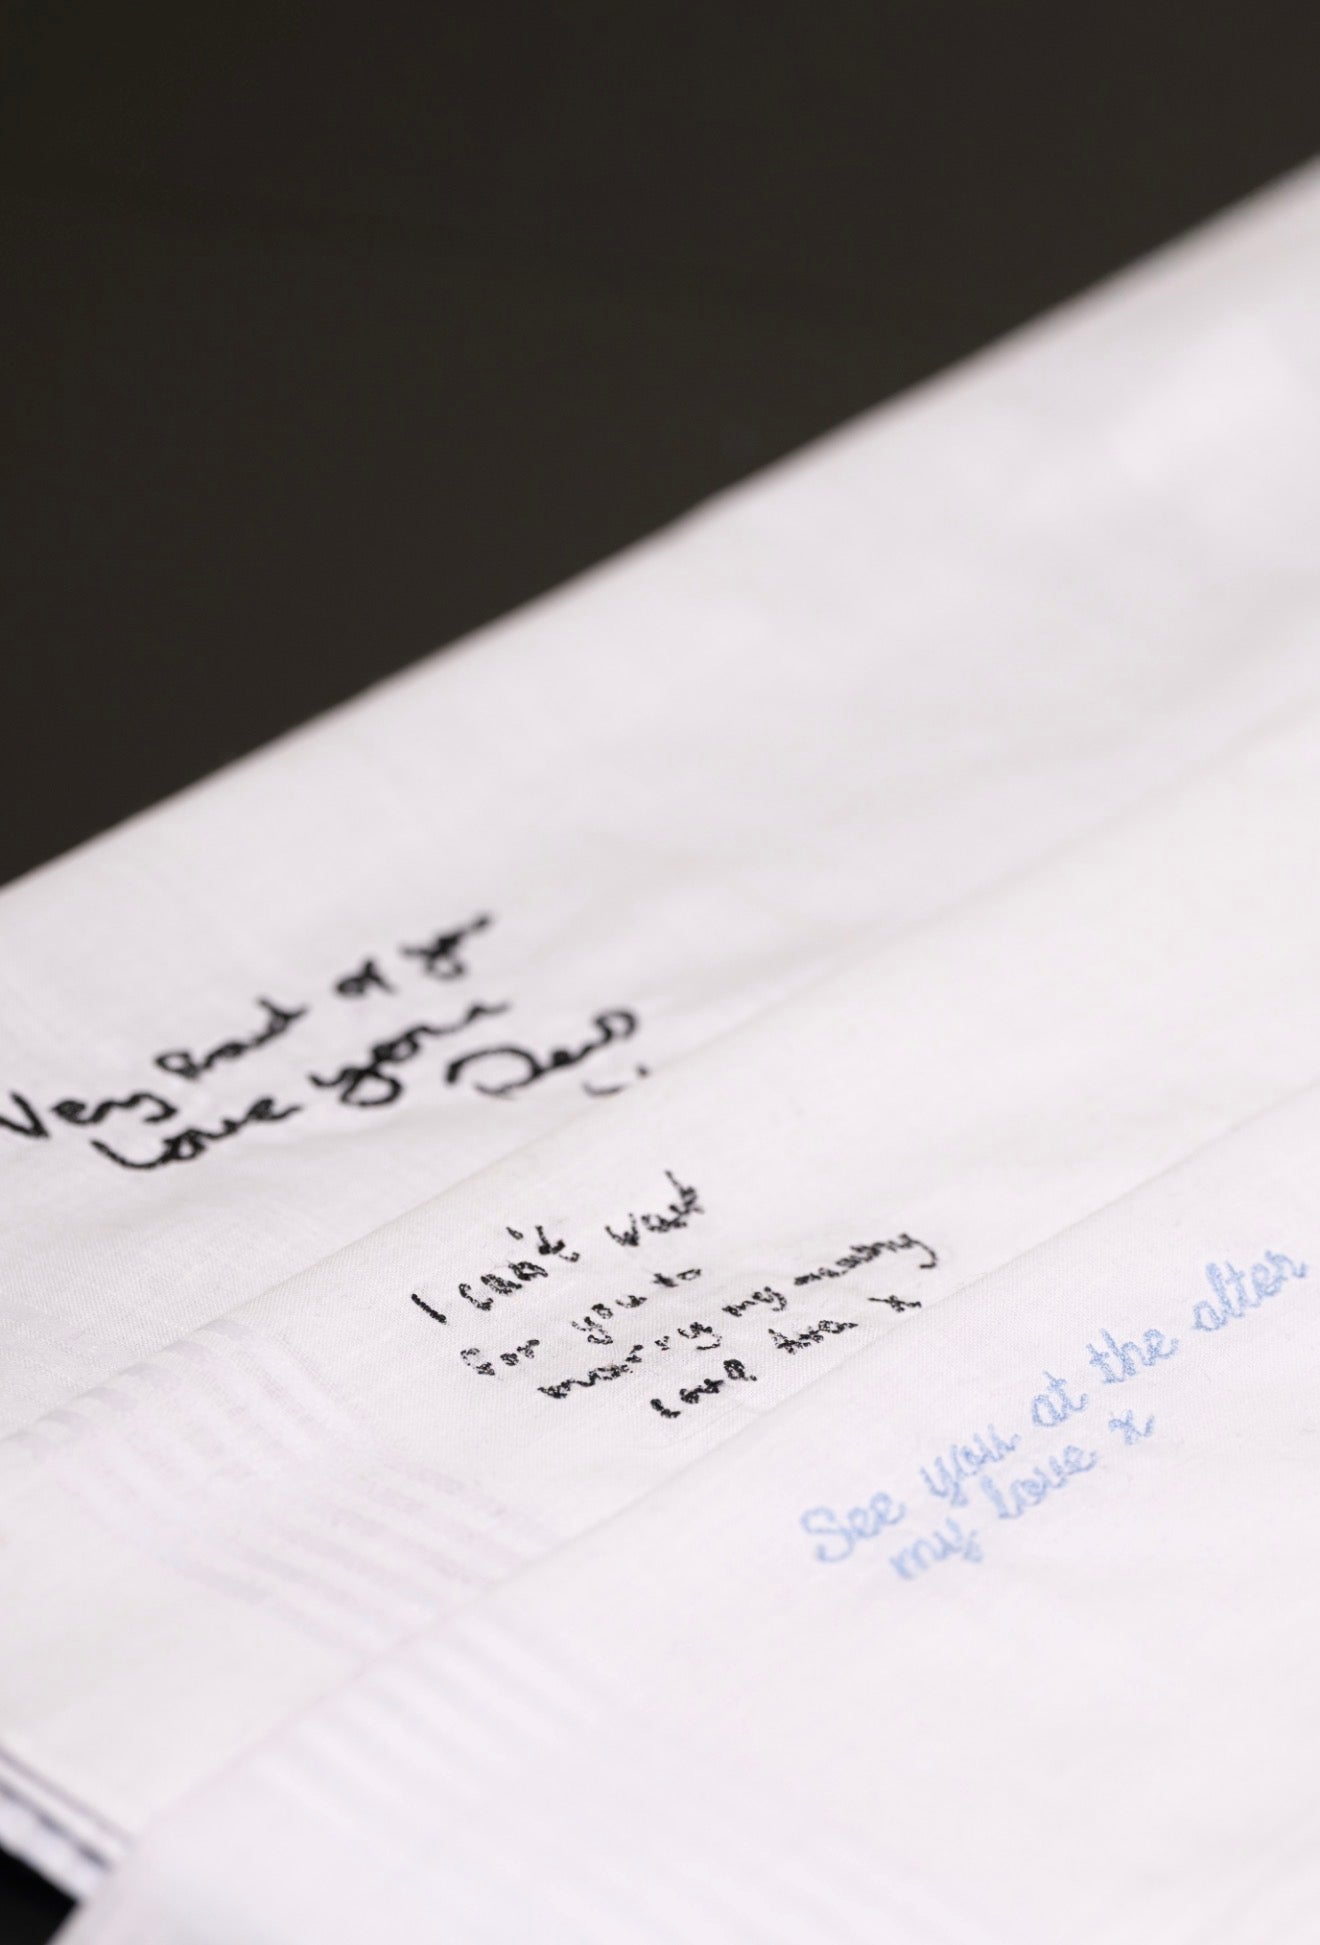 Very Proud of you
Love you
I can't wait
for you to
marry my mummy
love x
See you at the alter
my love x